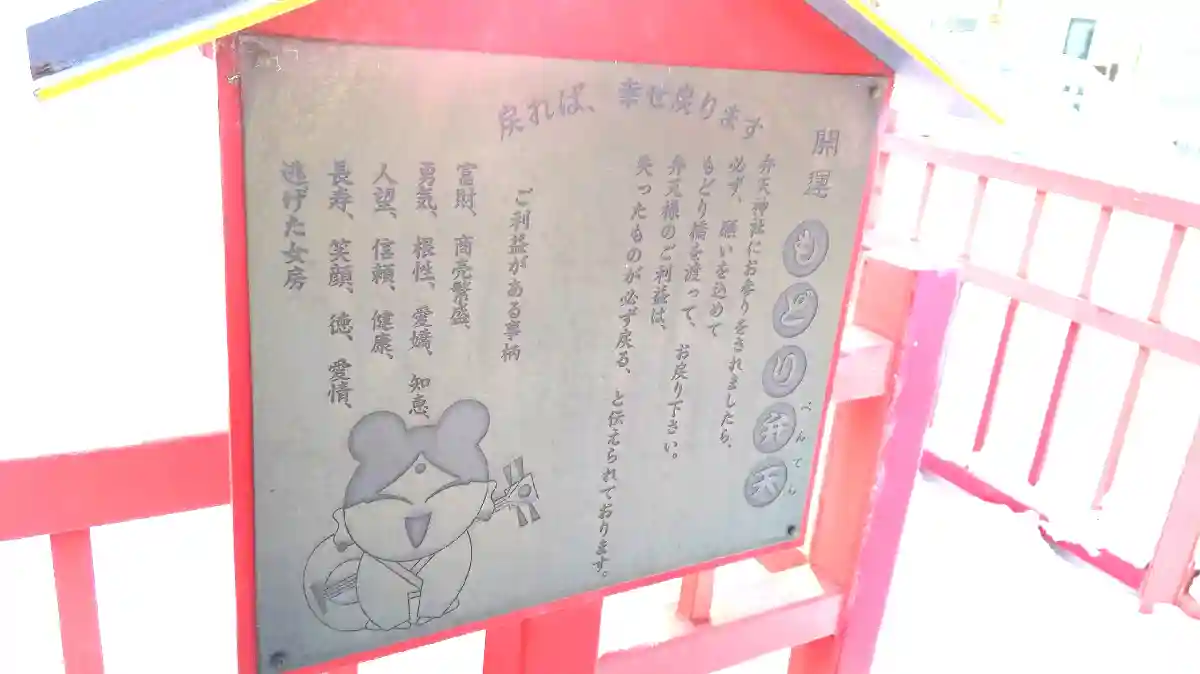 戻れば、幸せ戻ります
開運
もどり弁天
べんてん
弁天神社にお参りをされましたら、
必ず、願いを込めて
もどり橋を渡って、お戻り下さい。
弁天様のご利益は、
失ったものが必ず戻る、と伝えられております。
ご利益がある事柄
富財、商売繁盛、
勇気、根性、愛嬌、知恵、
人望、信頼、健康、
長寿、笑顔、徳、愛情、
逃げた女房